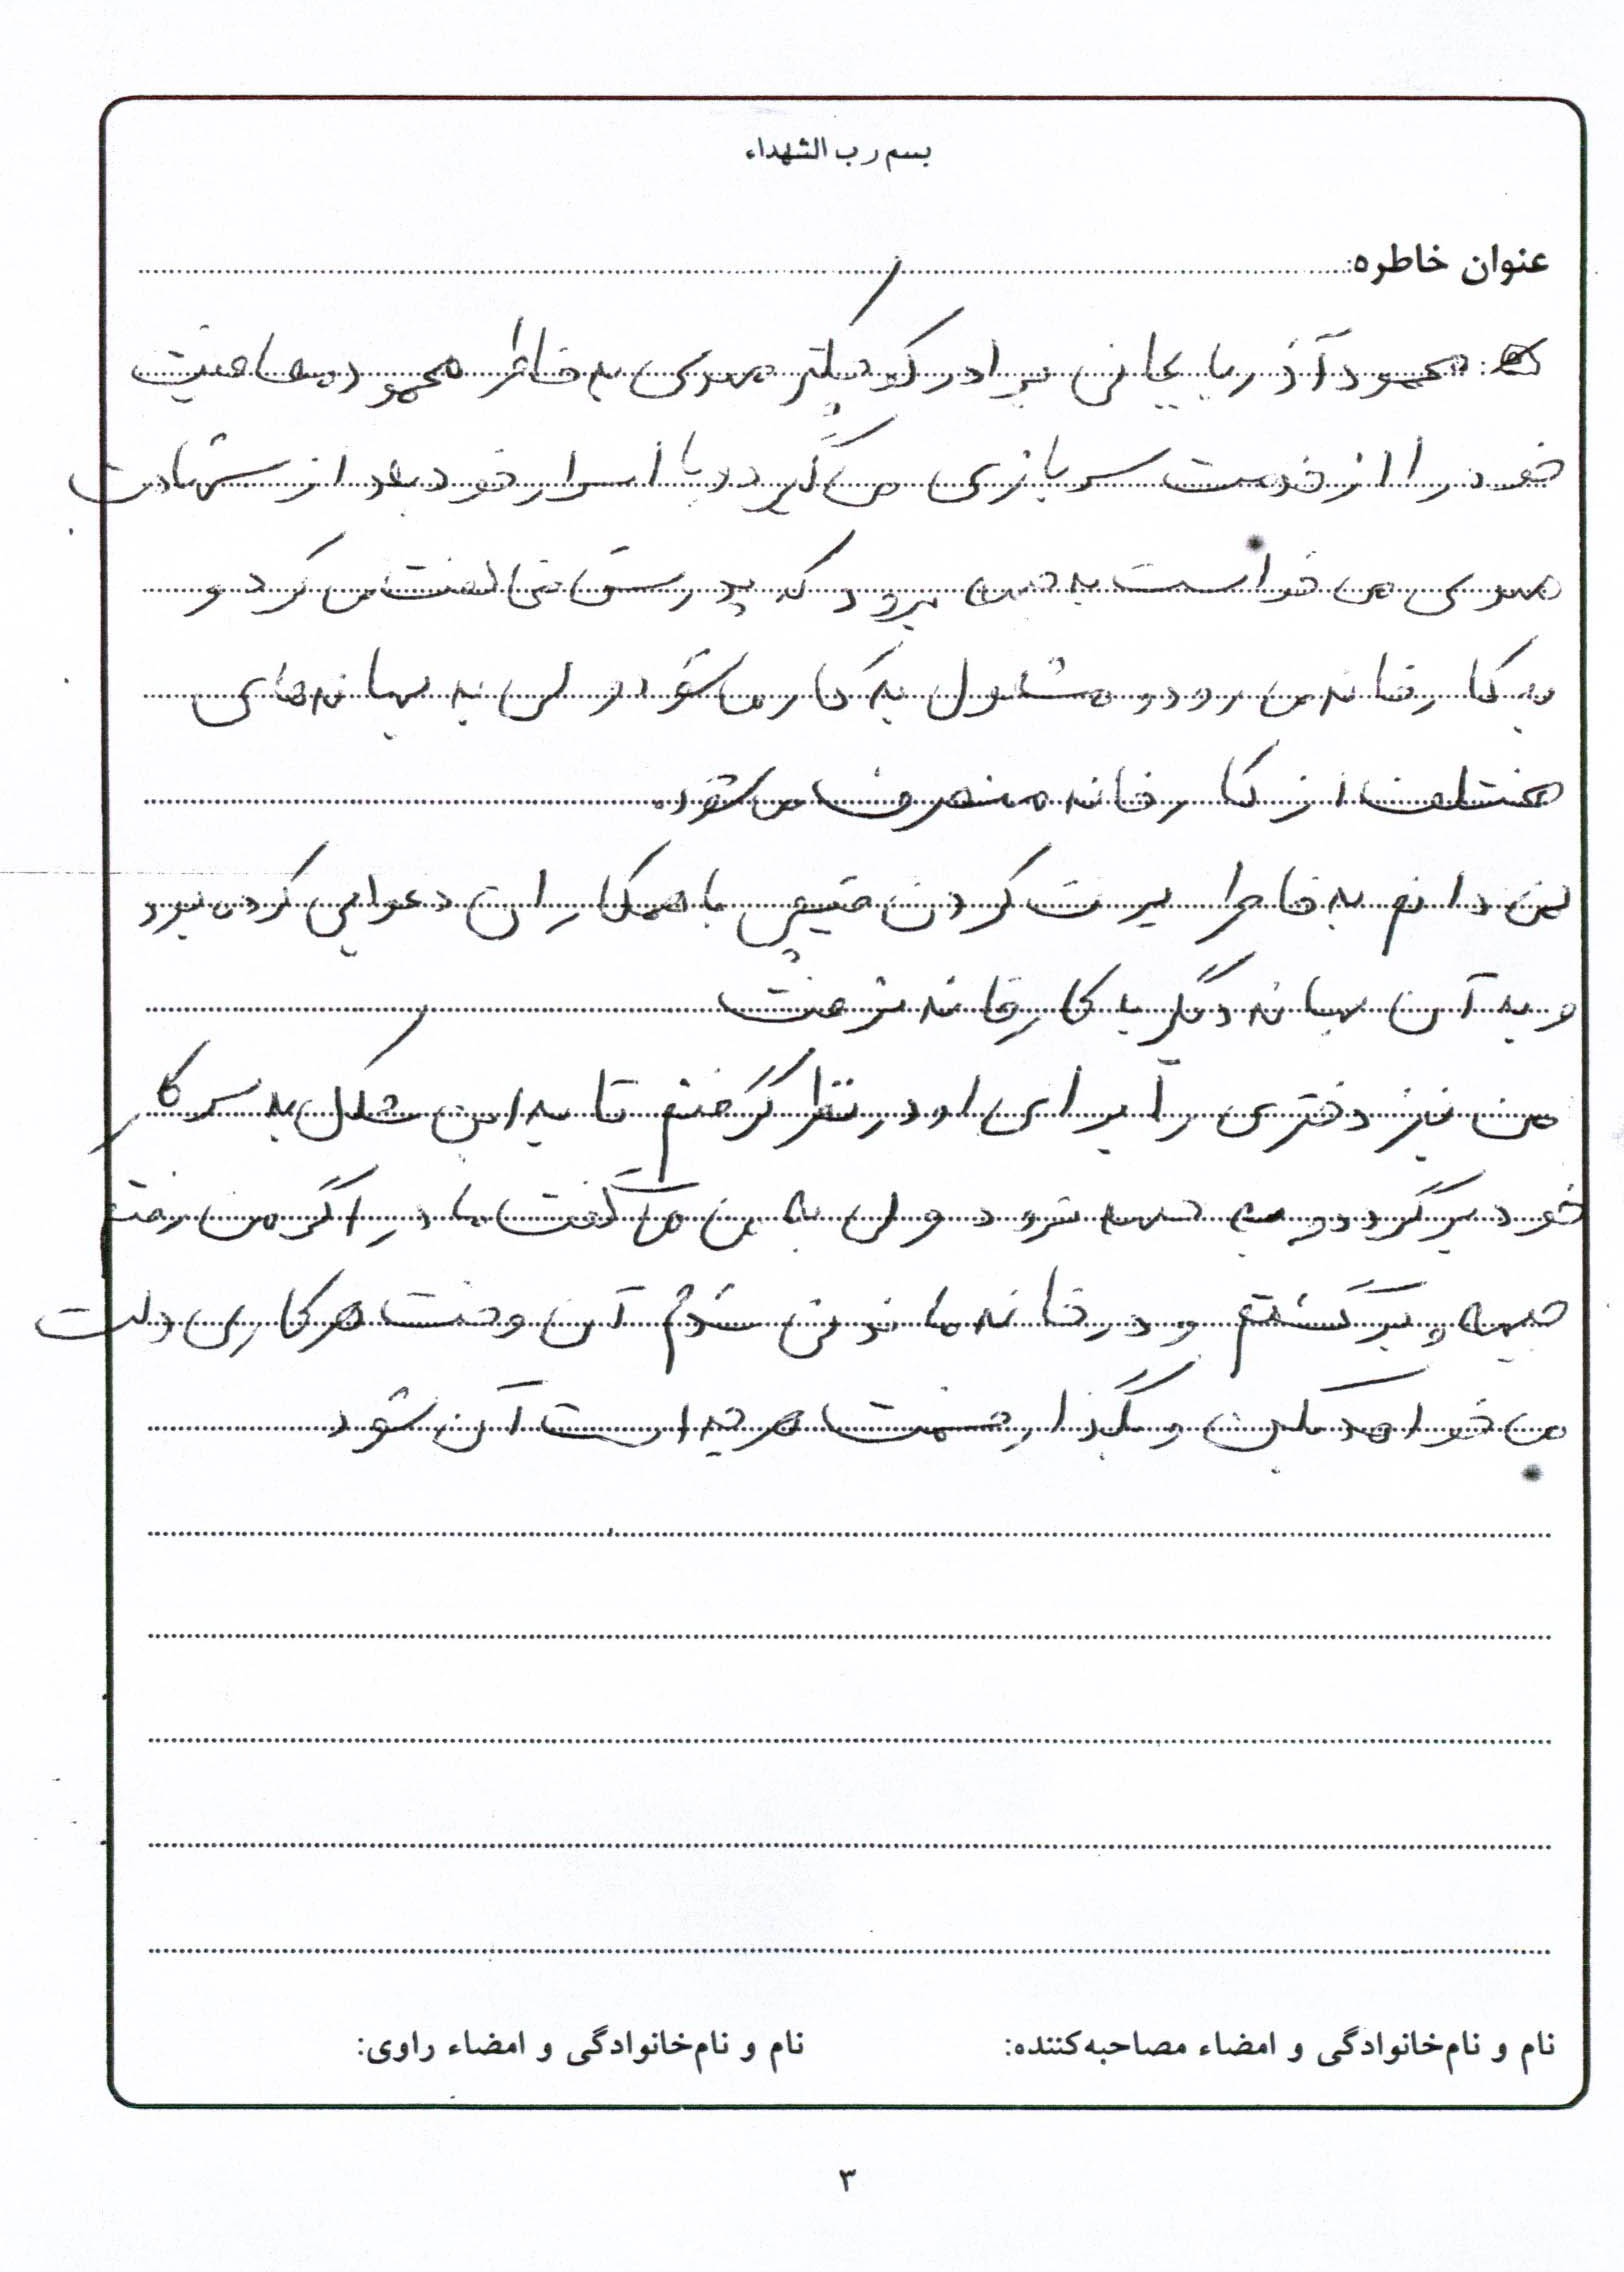 بسم رب الشهداء
عنوان خاطره:
محمود آذربایجانی برادر کوچکتر مهدی به خاطر محمود معافیت
خود را از خدمت سربازی می گیرد و با اسرار خود بعد از شهادت
مهدی می خواست به جبهه برود که پدرش مخالفت می کرد و
به کارخانه می رود و مشغول به کار می شود ولی به بهانه های
مختلف از کارخانه منصرف می شود.
نمی دانم به خاطر پرت کردن قیچی با همکاران دعوایی کرده بود
و به آن بهانه دیگر به کارخانه نرفت
من نیز دختری را برای او در نظر گرفتم تا به این شکل به سر کار
خود برگردد و به جبهه نرود ولی به من می گفت مادر اگر من رفتم
جبهه و برگشتم و در خانه ماندنی شدم آن وقت هر کاری دلت
می خواهد بکن و بگذار قسمت هر چه است آن شود
نام و نام‌خانوادگی و امضاء مصاحبه‌کننده: نام و نام‌خانوادگی و امضاء راوی:
۳